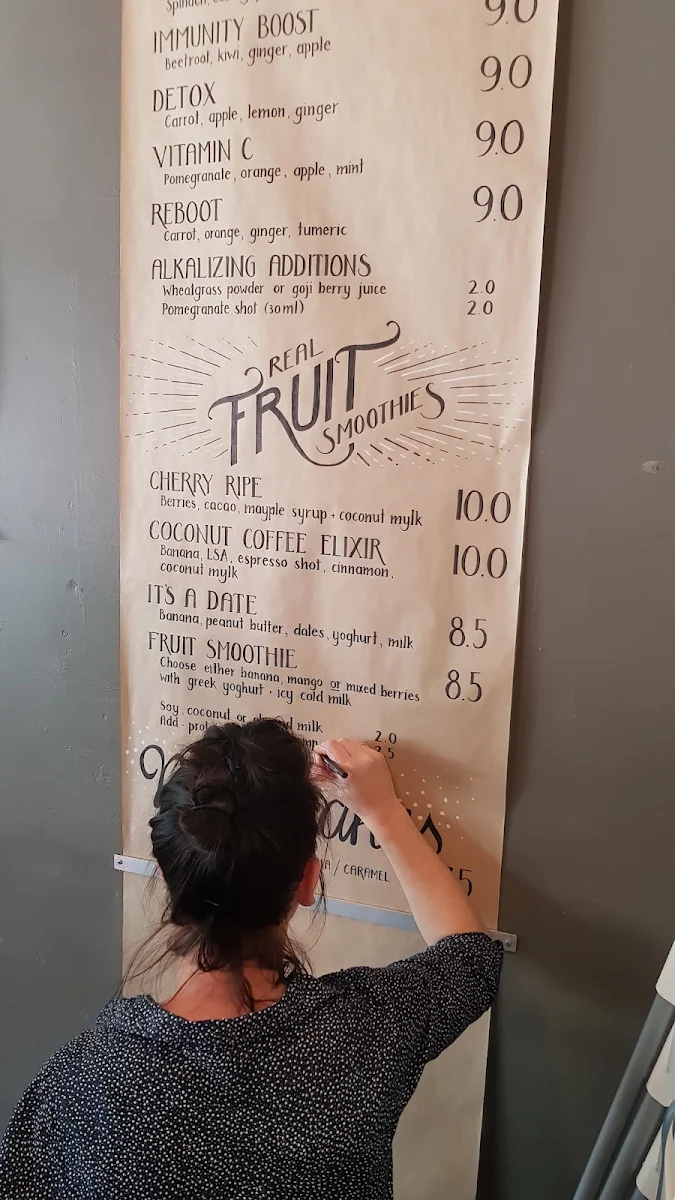 9.0
IMMUNITY BOOST
Beetroot, kiwi, ginger, apple
DETOX 9.0
Carrot, apple, lemon, ginger
VITAMIN C 9.0
Pomegranate, orange, apple, mint
REBOOT 9.0
Carrot, orange, ginger, tumeric
ALKALIZING ADDITIONS
Wheatgrass powder or goji berry juice 2.0
Pomegranate shot (30ml) 2.0
REAL
FRUIT
SMOOTHIES
CHERRY RIPE
Berries, cacao, mayple syrup + coconut mylk 10.0
COCONUT COFFEE ELIXIR
Banana, LSA, espresso shot, cinnamon, 10.0
coconut mylk
IT'S A DATE
Banana, peanut butter, dates, yoghurt, milk 8.5
FRUIT SMOOTHIE
Choose either banana, mango or mixed berries 8.5
with greek yoghurt + icy cold milk
Soy, coconut or milk 2.0
Add
/ CARAMEL